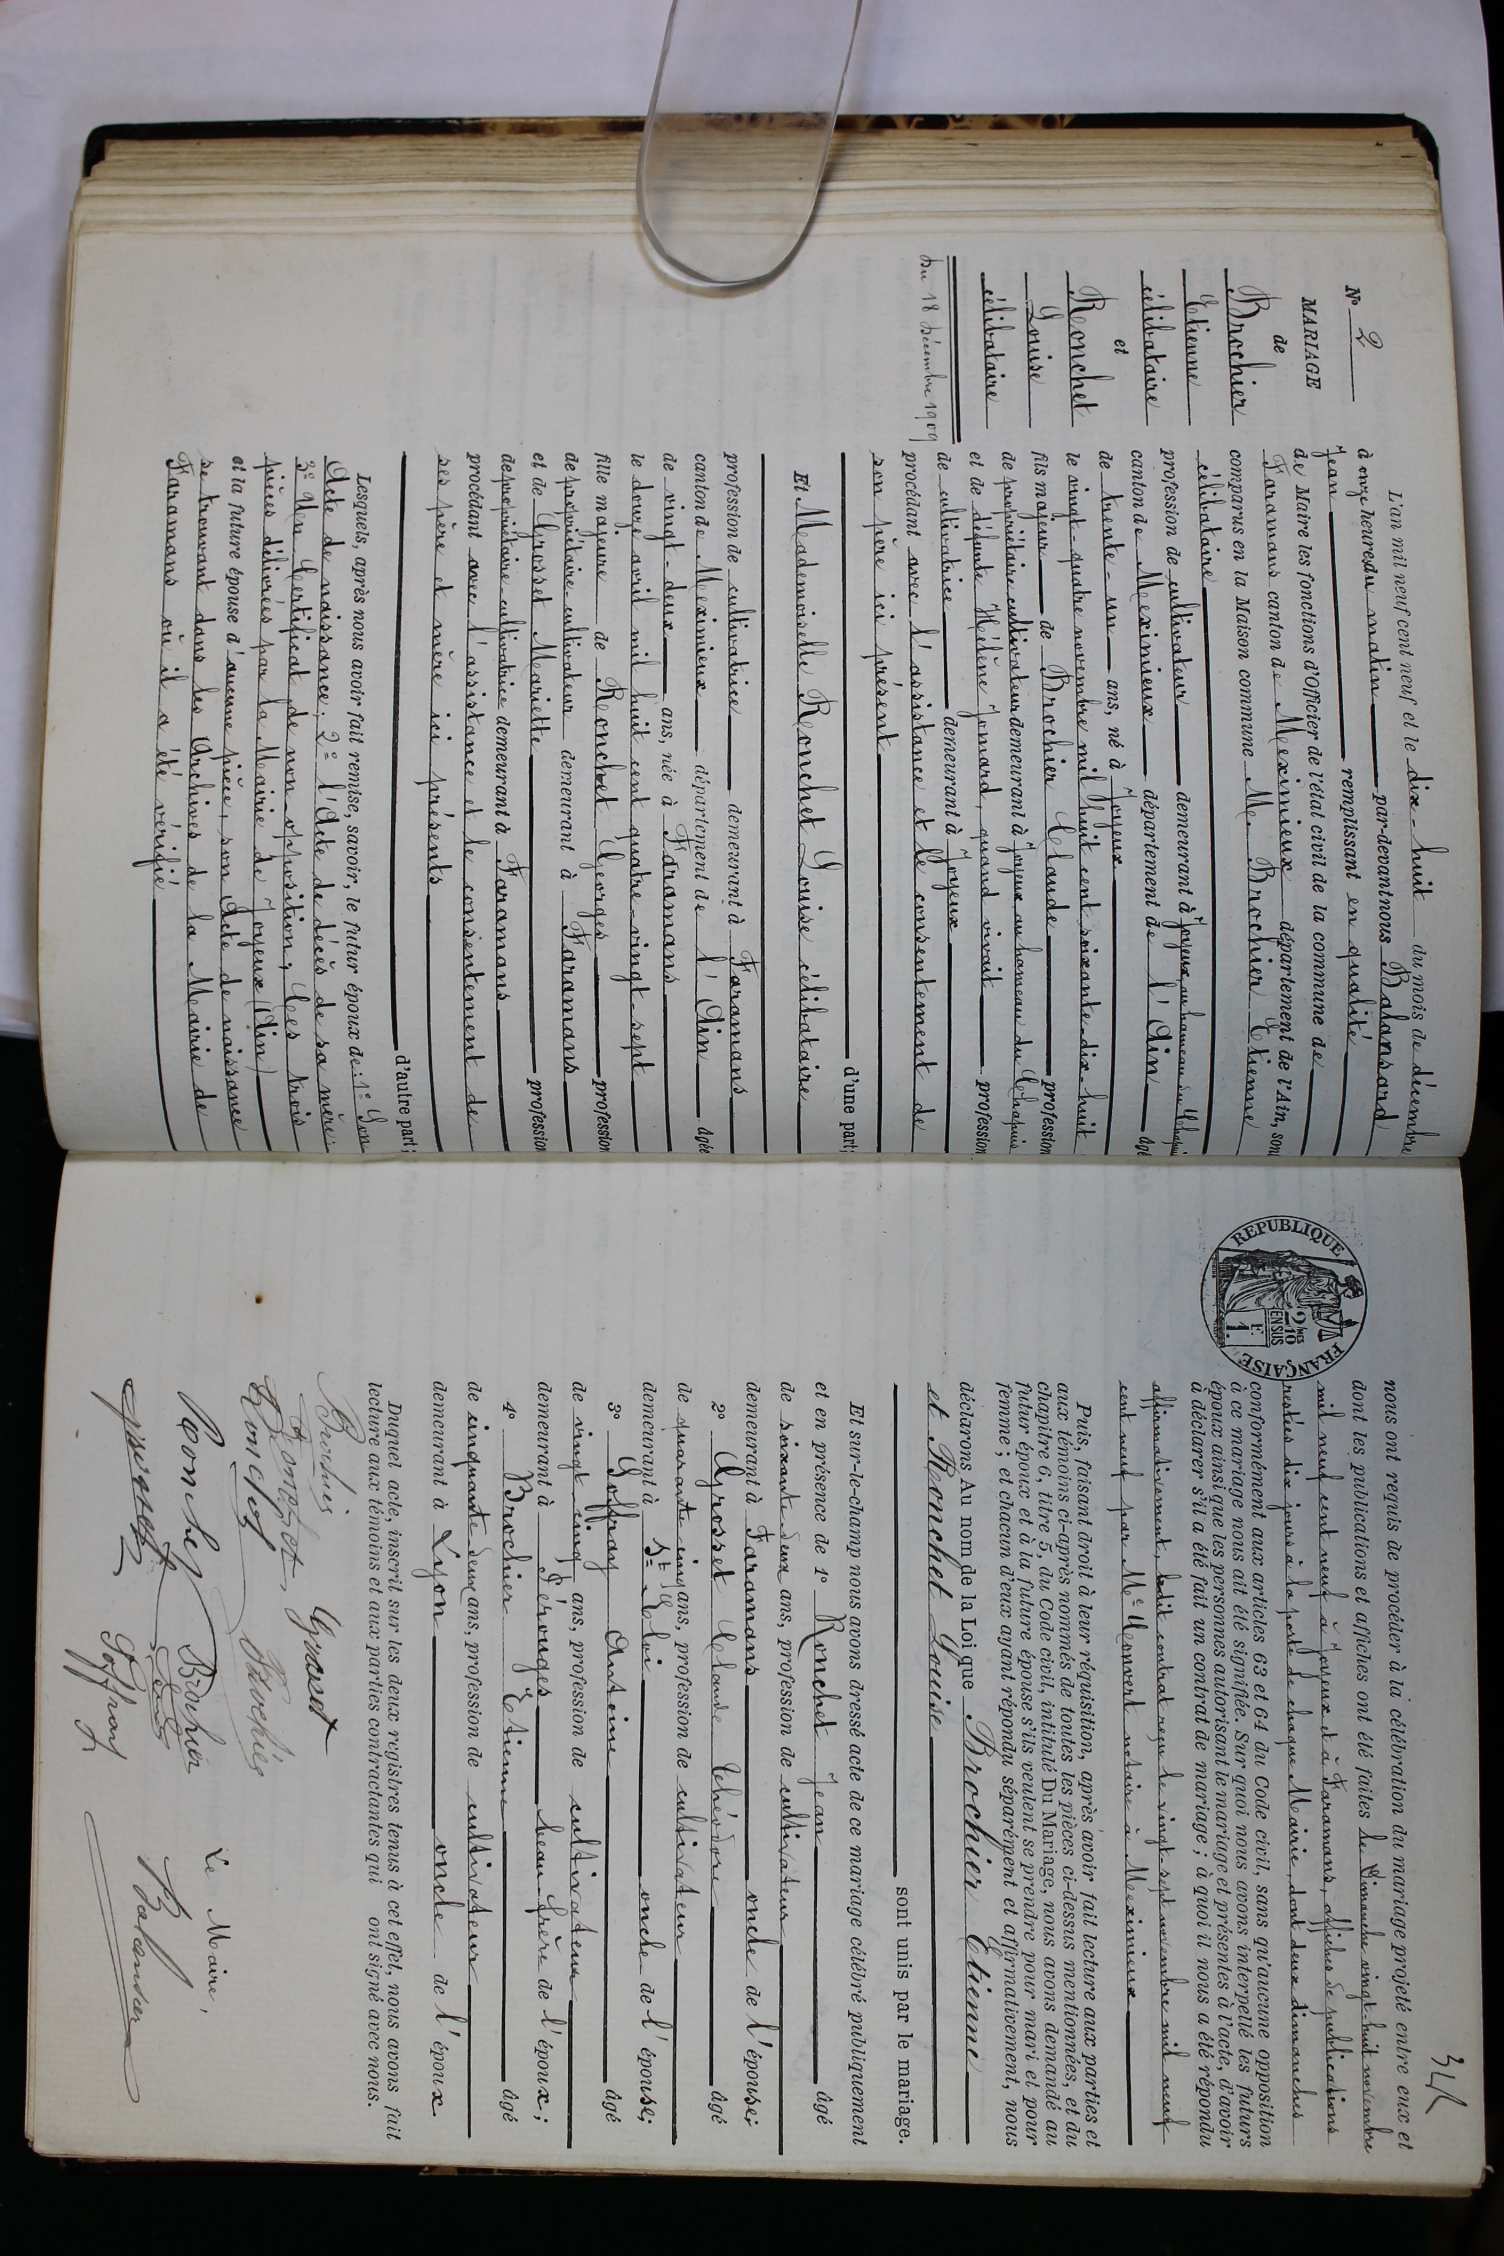 N° 2
MARIAGE
de
Brochier
Etienne
célibataire
et
Ronchet
Louise
célibataire
Du 18 Décembre 1909
L'an mil neuf cent neuf et le dix-huit du mois de décembre
à onze heures du matin par-devant nous Balansard
Jean remplissant en qualité
de Maire les fonctions d'Officier de l'état civil de la commune de
Faramans canton de Meximieux département de l'Ain, sont
comparus en la Maison commune M. Brochier Etienne
célibataire
profession de cultivateur demeurant à Joyeux, au hameau du Chapuis
canton de Meximieux département de l'Ain âgé
de trente-un ans, né à Joyeux
le vingt-quatre novembre mil huit cent soixante-dix-huit
fils majeur de Brochier Claude profession
de propriétaire cultivateur demeurant à Joyeux au hameau du Chapuis
et de défunte Hélène Jomard, quand vivait profession
de cultivatrice demeurant à Joyeux
procédant avec l'assistance et le consentement de
son père ici présent
d'une part;
Et Mademoiselle Ronchet Louise célibataire
profession de cultivatrice demeurant à Faramans
canton de Meximieux département de l'Ain âgée
de vingt-deux ans, née à Faramans
le douze avril mil huit cent quatre-vingt-sept
fille majeure de Ronchet Georges profession
de propriétaire-cultivateur demeurant à Faramans
et de Grosset Mariette profession
de propriétaire-cultivatrice demeurant à Faramans
procédant avec l'assistance et le consentement de
ses père et mère ici présents
d'autre part;
Lesquels, après nous avoir fait remise, savoir, le futur époux de: 1° Son
Acte de naissance; 2° l'Acte de décès de sa mère;
3° Un Certificat de non-opposition; Ces trois
pièces délivrées par la Mairie de Joyeux (Ain)
et la future épouse d'aucune pièce, son Acte de naissance
se trouvant dans les Archives de la Mairie de
Faramans où il a été vérifié
34
REPUBLIQUE FRANÇAISE
2/10 EN SUS
F. 1.
nous ont requis de procéder à la célébration du mariage projeté entre eux et
dont les publications et affiches ont été faites le Dimanche vingt-huit novembre
mil neuf cent neuf à Joyeux et à Faramans, affiches de publications
restées dix jours à la porte de chaque Mairie, dont deux dimanches
conformément aux articles 63 et 64 du Code civil, sans qu'aucune opposition
à ce mariage nous ait été signifiée. Sur quoi nous avons interpellé les futurs
époux ainsi que les personnes autorisant le mariage et présentes à l'acte, d'avoir
à déclarer s'il a été fait un contrat de mariage; à quoi il nous a été répondu
affirmativement, ledit contrat reçu le vingt-sept novembre mil neuf
cent neuf par Me Convert notaire à Meximieux
Puis, faisant droit à leur réquisition, après avoir fait lecture aux parties et
aux témoins ci-après nommés de toutes les pièces ci-dessus mentionnées, et du
chapitre 6, titre 5, du Code civil, intitulé Du Mariage, nous avons demandé au
futur époux et à la future épouse s'ils veulent se prendre pour mari et pour
femme; et chacun d'eux ayant répondu séparément et affirmativement, nous
déclarons Au nom de la Loi que Brochier Etienne
et Ronchet Louise
sont unis par le mariage.
Et sur-le-champ nous avons dressé acte de ce mariage célébré publiquement
et en présence de 1° Ronchet Jean âgé
de soixante deux ans, profession de cultivateur
demeurant à Faramans oncle de l'épouse;
2° Grosset Claude Théodore âgé
de quarante cinq ans, profession de cultivateur
demeurant à St-Eloi oncle de l'épouse;
3° Joffray Antoine âgé
de vingt cinq ans, profession de cultivateur
demeurant à Pérouges beau-frère de l'époux;
4° Brochier Etienne âgé
de cinquante deux ans, profession de cultivateur
demeurant à Lyon oncle de l'époux
Duquel acte, inscrit sur les deux registres tenus à cet effet, nous avons fait
lecture aux témoins et aux parties contractantes qui ont signé avec nous.
Brochier
Ronchet Grosset
Ronchet Brochier
Ronchet Brochier
Joffray
Le Maire,
Balansard